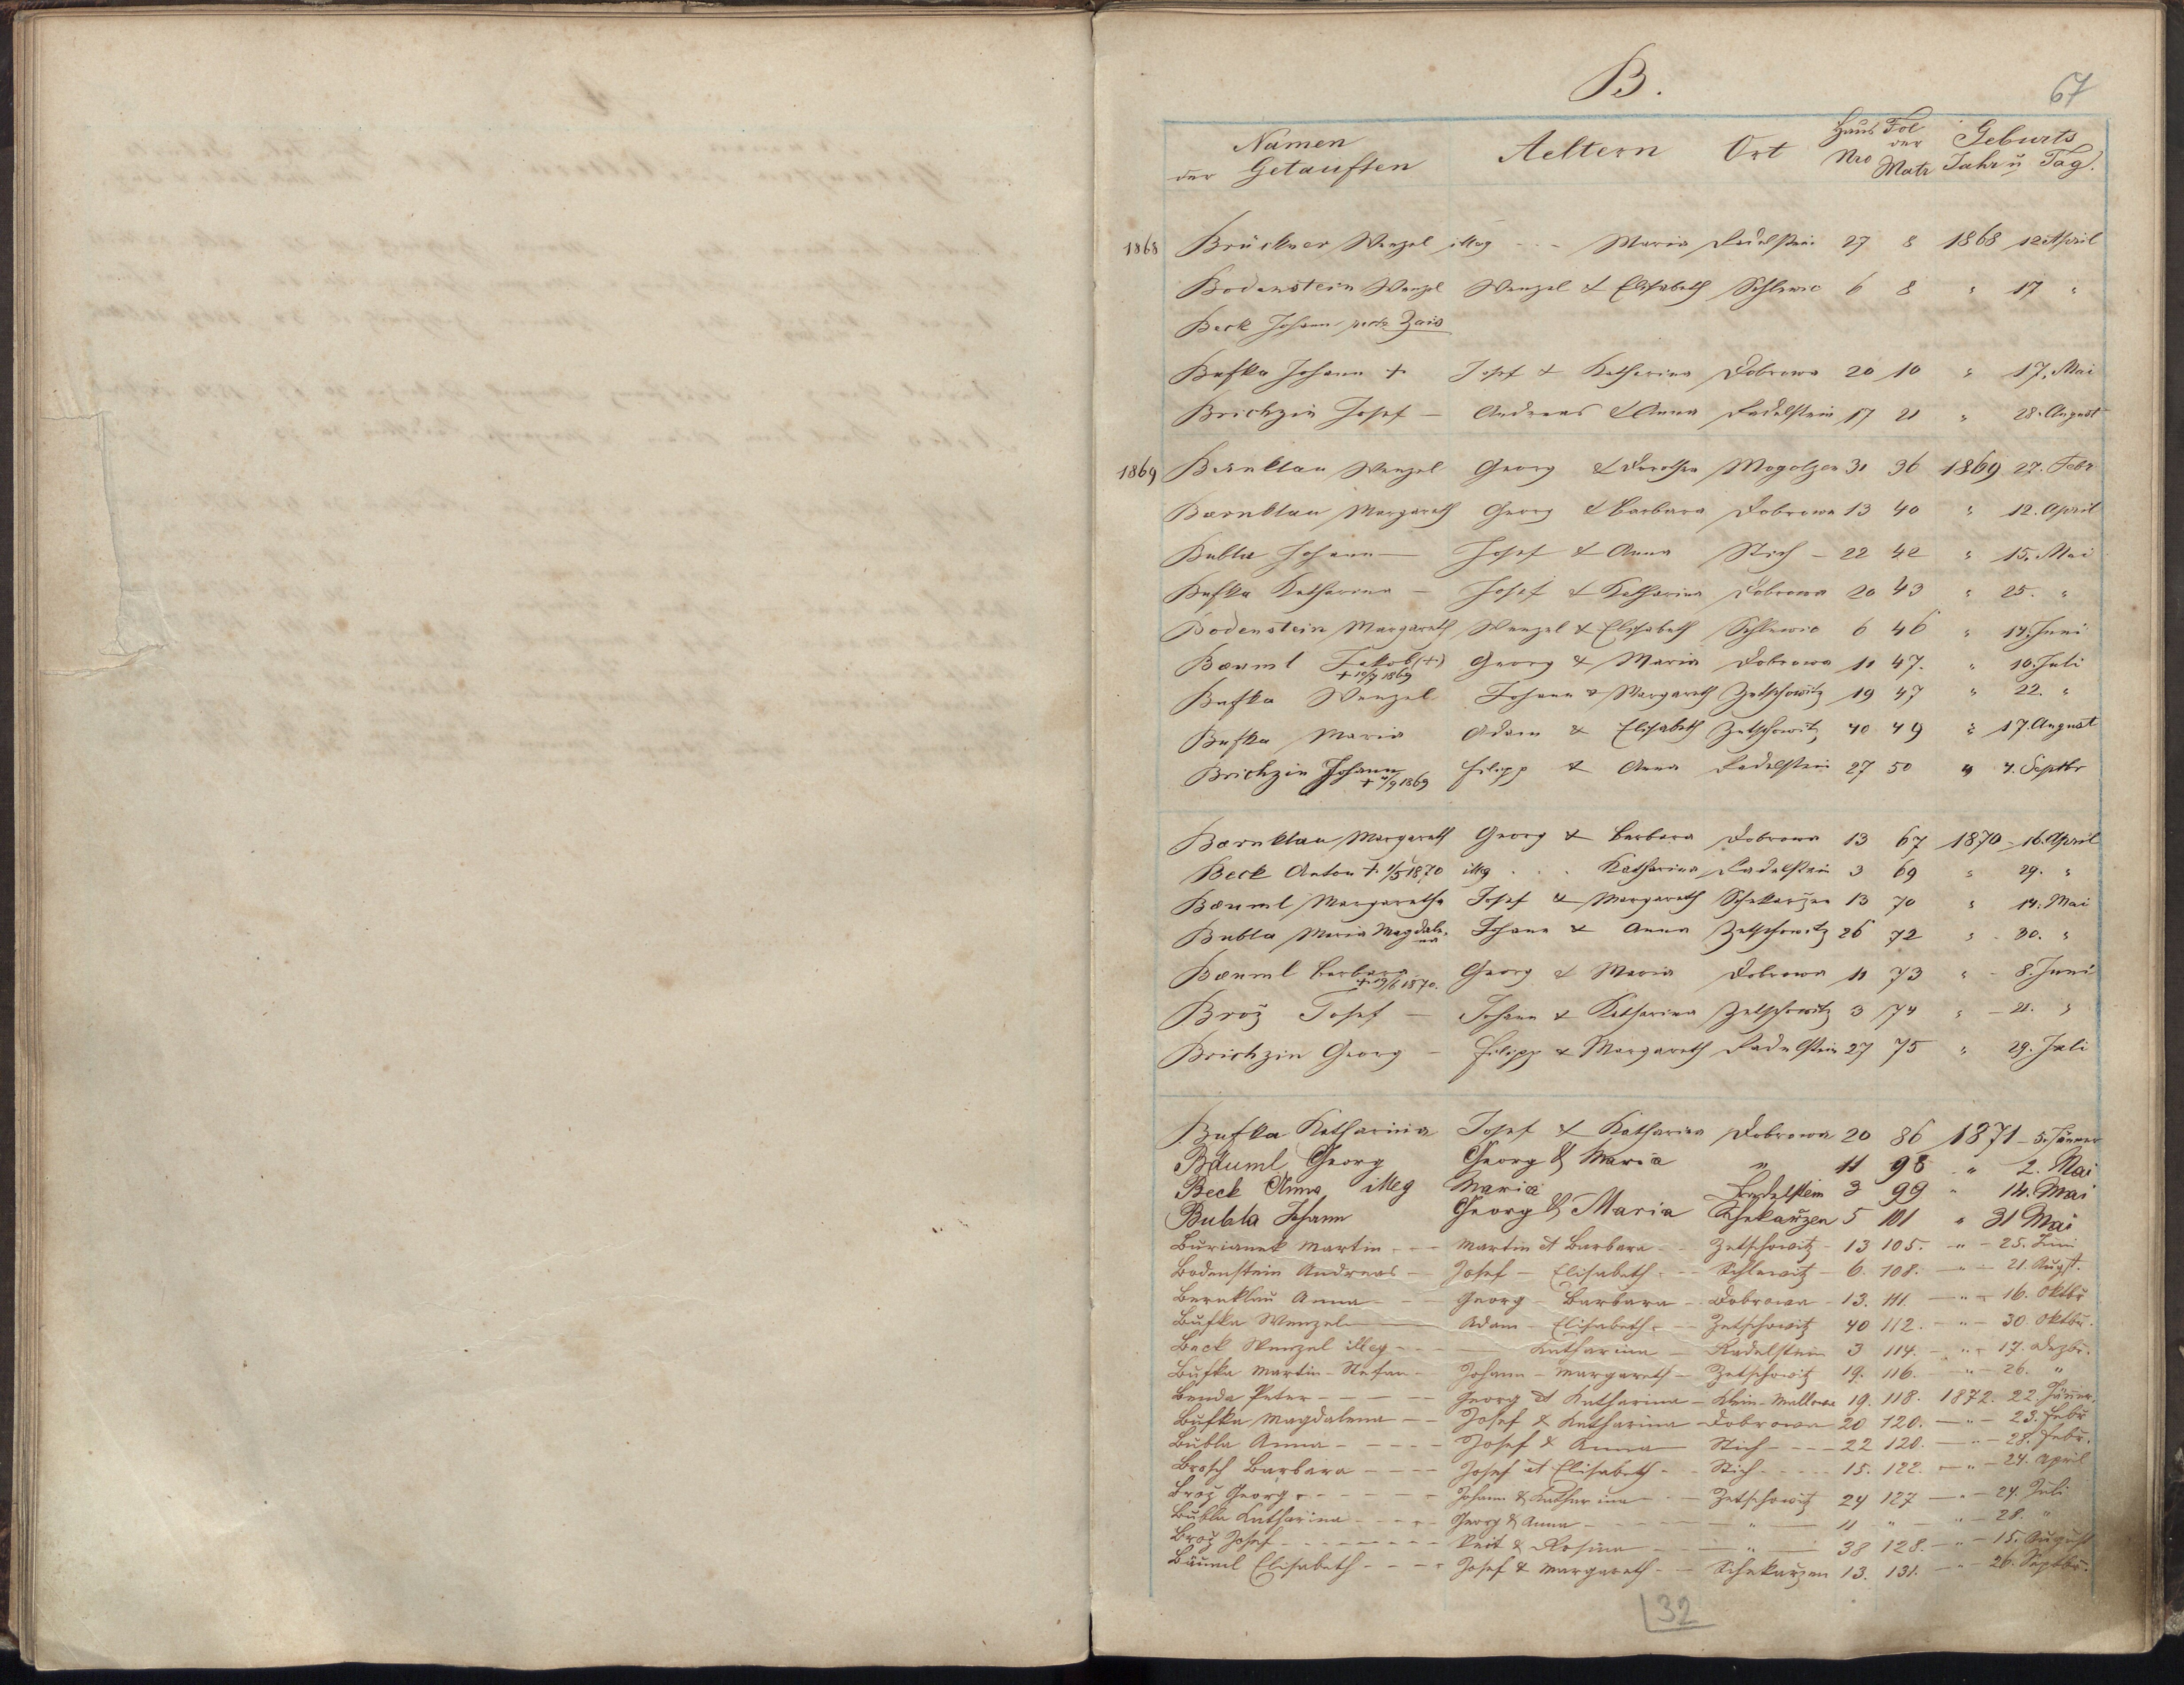 B.
67
Namen der Getauften Aeltern Ort Haus Nro Fol der Matr Geburts Jahr u Tag.
1868 Brückner Wenzel illeg - - - Maria Radelstein 27 8 1868 12 April
Bodenstein Wenzel Wenzel & Elisabeth Schlewic 6 8 " 17 "
Beck Johann recte Zais
Bufka Johann + Josef & Katharina Dobrowa 20 10 " 17. Mai
Brichzin Josef — Andreas & Anna Radelstein 17 21 " 28. August
1869 Bernklau Wenzel Georg & Dorothea Mogolzen 31 36 1869 27. Febr
Baernklau Margareth Georg & Barbara Dobrowa 13 40 " 12. April
Bubla Johann — Josef & Anna Stich - 22 42 " 15. Mai
Bufka Katharina — Josef & Katharina Dobrowa 20 43 " 25. "
Bodenstein Margareth Wenzel & Elisabeth Schlewic 6 46 " 14. Juni
Baeuml Jakob (+) Georg & Maria Dobrowa 11 47. " 10. Juli
+ 10/7 1869
Bufka Wenzel Johann & Margareth Zetschowitz 19 47 " 22. "
Bufka Maria Adam & Elisabeth Zetschowitz 40 49 " 17. August
Brichzin Johann Filipp & Anna Radelstein 27 50 " 4. Septbr
1869
Baernklau Margareth Georg & Barbara Dobrowa 13 67 1870 - 16. April
Beck Anton + 1/5 1870 illeg . . . Katharina Radelstein 3 69 " 29. "
Baeuml Margaretha Josef & Margareth Schekarzen 13 70 " 14. Mai
Bubla Maria Magdale-na Johann & Anna Zetschowitz 26 72 " 30. "
Baeuml Barbara Georg & Maria Dobrowa 11 73 " - 8. Juni
1870.
Brož Josef — Johann & Katharina Zetschowitz 3 74 " - 21. "
Brichzin Georg — Filipp & Margareth Radelstein 27 75 " 29. Juli
Bufka Katharina Josef & Katharina Dobrowa 20 86 1871 - 5. Jänner
Bäuml Georg Georg & Maria " 11 98 " 2. Mai
Beck Anna illeg Maria Radelstein 3 99 " 14. Mai
Bubla Johann Georg & Maria Schekarzen 5 101 " 31 Mai
Burianek Martin - - Martin et Barbara - - Zetschowitz - 13 105. - " - 25. Juni
Bodenstein Andreas — Josef — Elisabeth. - - Schlewitz - 6. 108. - " - 21. Augst.
Bernklau Anna - - Georg - Barbara - Dobrowa - 13. 111. - " - 16. Oktbr
Bufka Wenzel — Adam - Elisabeth. - - Zetschowitz 40 112. - " - 30. Oktbr.
Beck Wenzel illeg - - - Katharina — Radelstein 3 114. - " - 17. Dezbr.
Bufka Martin-Stefan - Johann - Margareth - Zetschowitz 19. 116. - " - 26. "
Benda Peter - - - - Georg et Katharina - Klein-Mallowa 19. 118. 1872. 22. Jänner.
Bufka Magdalena - - Josef & Katharina - Dobrowa 20 120. - " - 23. Febr
Bubla Anna - - - - Josef & Anna — Stich - - - 22 120. - " - 28. Febr.
Brosch Barbara - - - Josef et Elisabeth - - Stich - - - - 15. 122. - " - 24. April
Brož Georg - - - - - Johann & Katharina — Zetschowitz 24 127 - " - 24. Juli
Bubla Katharina - - - - Georg & Anna - - - " — 11 " - " - 28. "
Brož Josef - - - - - - Veit & Rosina - - - " — 38 128. - " - 15. August
Bäuml Elisabeth - - - Josef & Margareth - - Schekarzen 13. 131. - " - 26. Septbr.
32